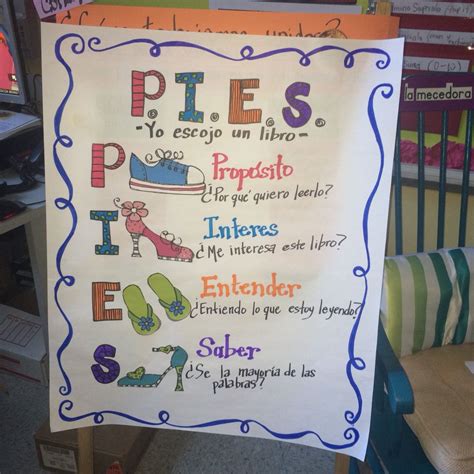 ¿Cómo trabajamos unidos?
la mecedora
P.I.E.S.
-Yo escojo un libro-
P Propósito
¿Por qué quiero leerlo?
I Interes
¿Me interesa este libro?
E Entender
¿Entiendo lo que estoy leyendo?
S Saber
¿Se la mayoría de las
palabras?